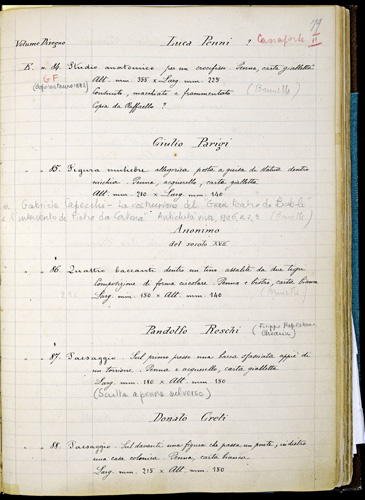 19
II
Volume Disegno Luca Penni ? Casaforte
E. n. 84. Studio anatomico per un crocifisso. Penna, carta gialletta
GF Alt. mm. 355 x Larg. mm. 225 (Brunelle)
Controtito, macchiato e frammentato
Copia da Raffaello ?
Giulio Parigi
" " 85. Figura muliebre allegorica posta a guisa di statua dentro
nicchia. Penna, acquerello, carta gialletta
Alt. mm. 210 x Larg. mm. 140
Gabriella Capecchi - La costruzione del Gran Teatro da Boboli
e l'intervento di Pietro da Cortona" Antichità viva, 2, 3
Anonimo
del secolo XVII
" " 86. Quattro baccanti dentro un tino assaliti da due tigri
Composizione di forma circolare. Penna e bistro, carta bianca
Larg. mm. 150 x Alt. mm. 140
Pandolfo Reschi (Filippo Napoletano
" " 87. Paesaggio. Sul primo piano una barca appiè di
un torrione. Penna e acquerello, carta gialletta
Larg. mm. 180 x Alt. mm. 150
(Scritta a penna sul verso)
Donato Creti
" " 88. Paesaggio. Sul davanti una figura che passa un ponte, indietro
una casa colonica. Penna, carta bianca
Larg. mm. 215 x Alt. mm. 150